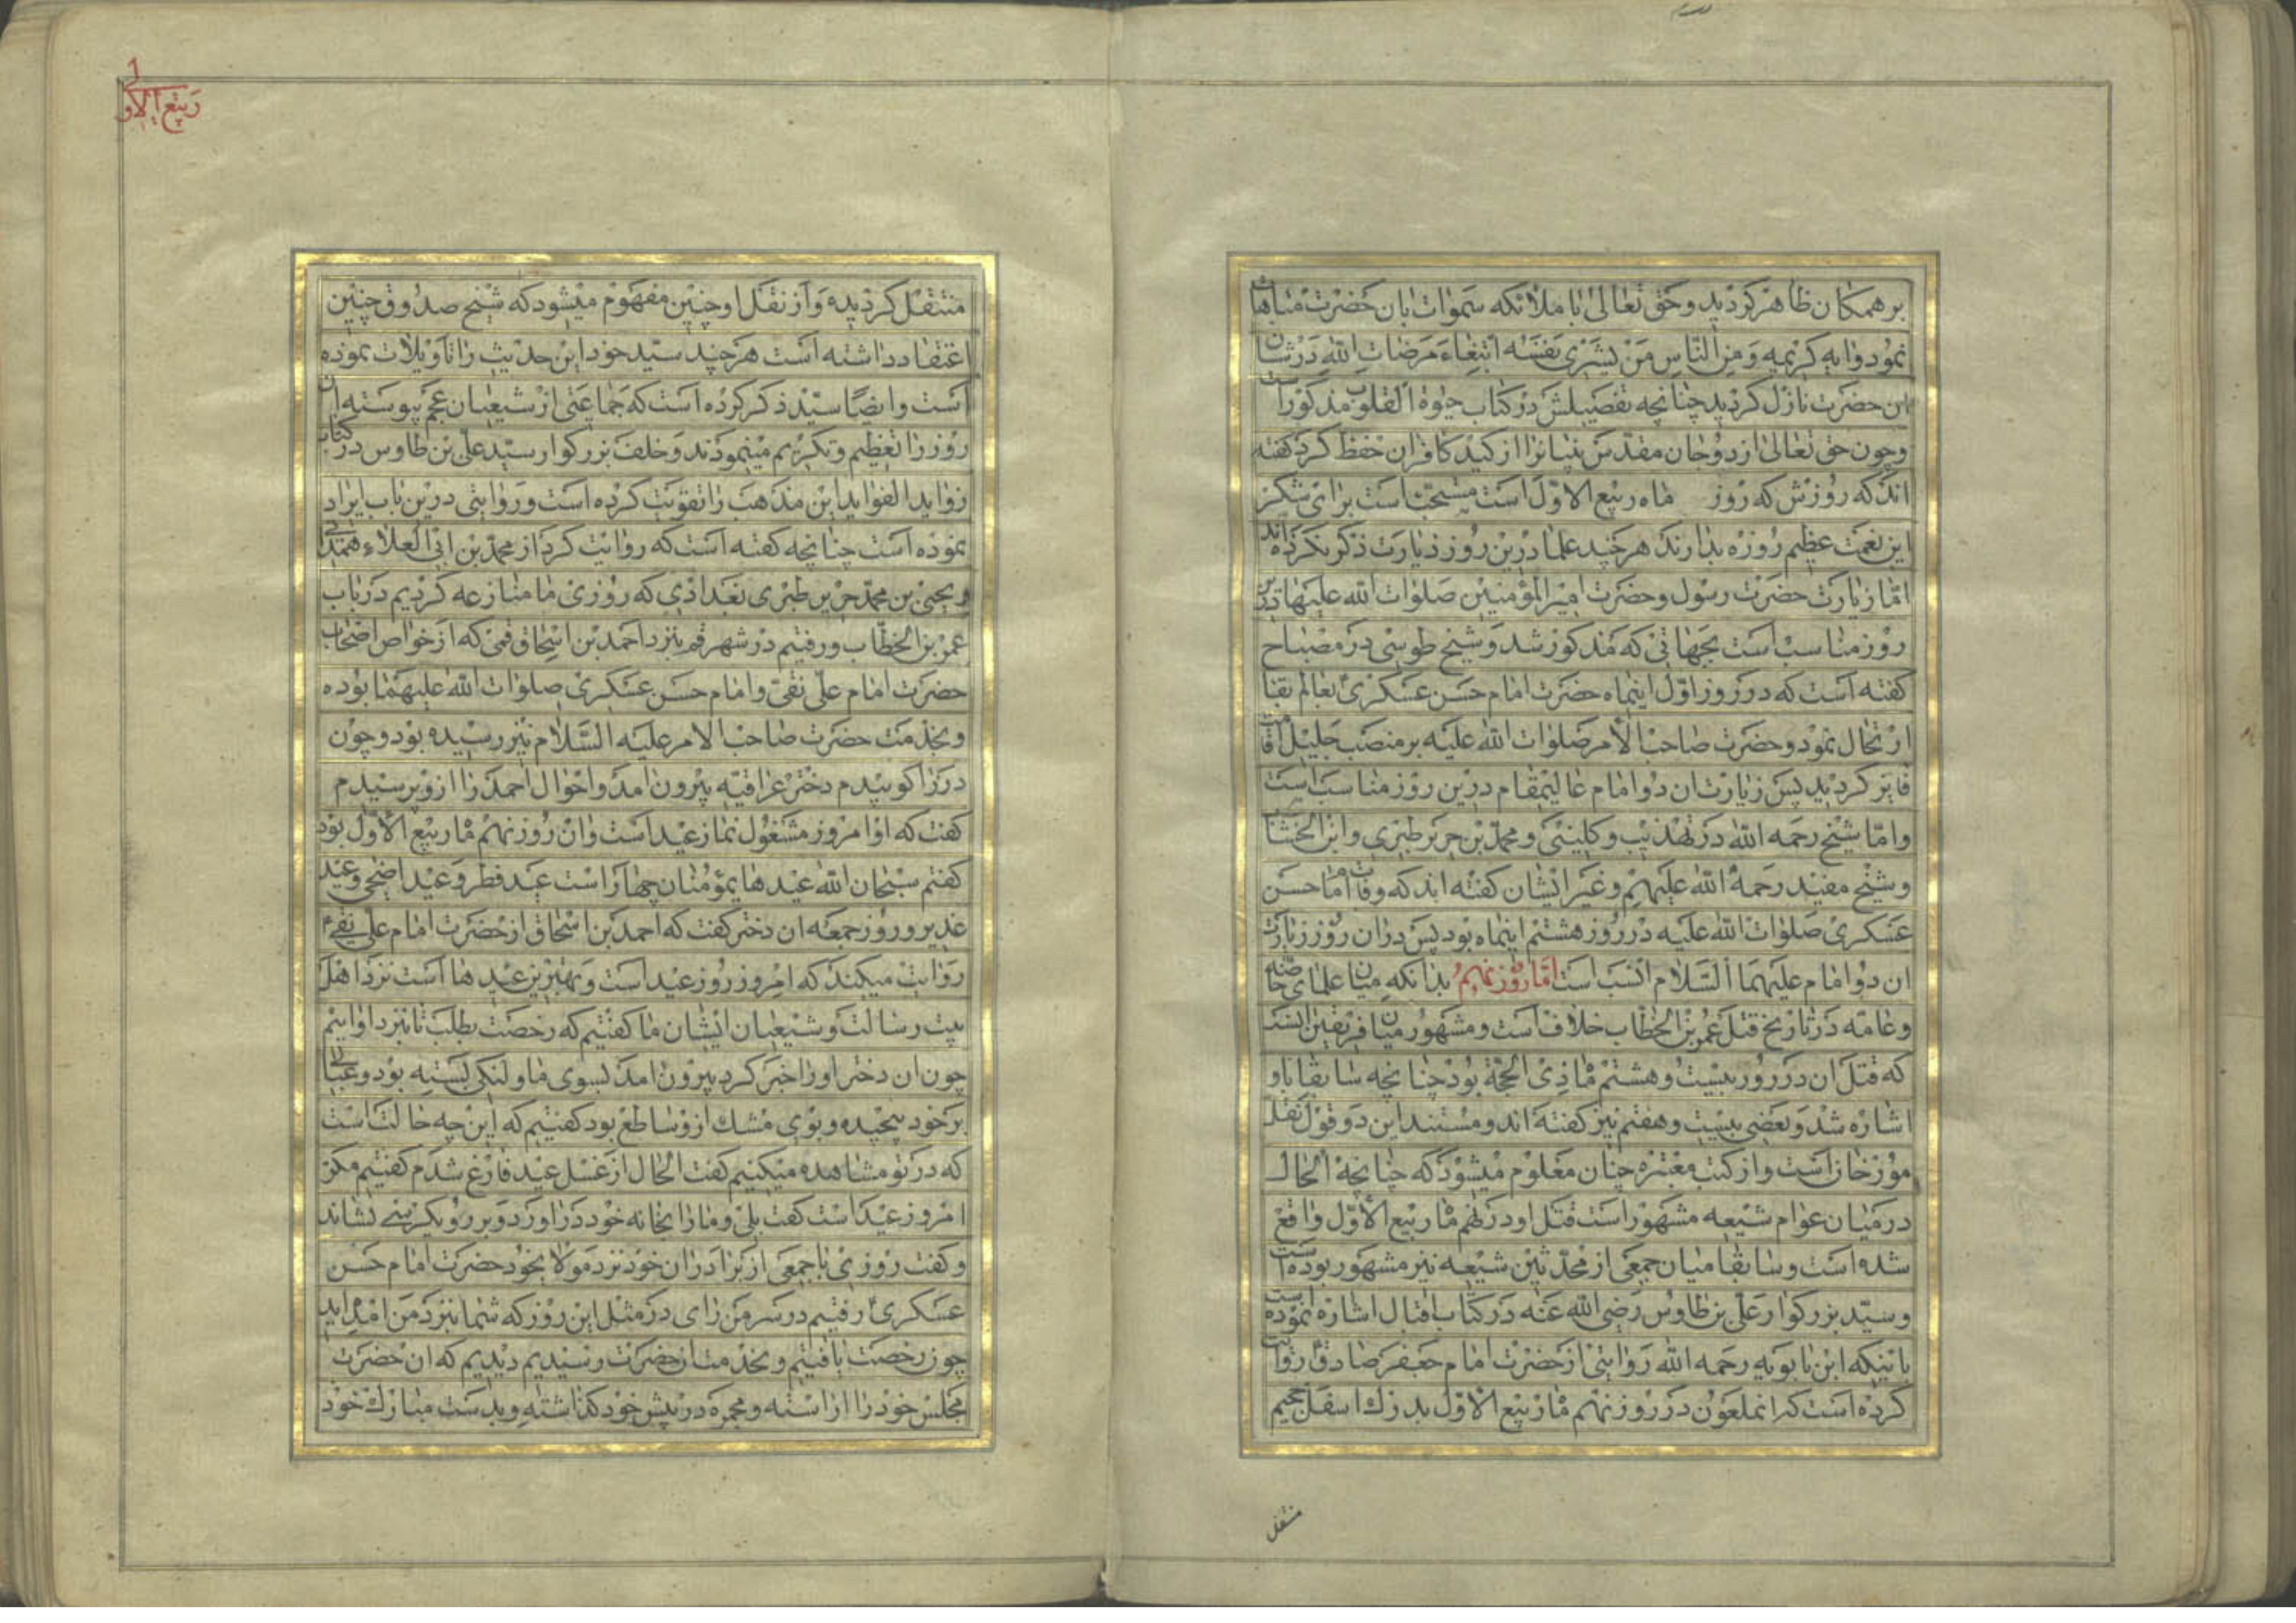 بر همکان ظاهر کردید و حق تعالی با ملائکه سموات بان حضرت مباهات
نمود وایه کریمه وَمِنَ النّاسِ مَنْ یَشْری نَفْسَهُ ابْتِغاءَ مَرَضاتِ اللهِ در شان
ان حضرت نازل کردید چنانچه تفصیلش در کتاب حیوة القلوب مذکور است
وچون حق تعالی از دو جان مقدس نبیانرا از کید کافران حفظ کرد کفته
اند که روزش که روز ماه ربیع الاوّل است مستحبّ است برای شکر
این نعمت عظیم روزه بدارند هر چند علما درین روز زیارت ذکر نکرده اند
امّا زیارت حضرت رسول و حضرت امیر المؤمنین صلوات الله علیهما درین
روز مناسب است بجهاتی که مذکور شد و شیخ طوسی در مصباح
کفته است که در روز اوّل اینماه حضرت امام حسن عسکری بعالم بقا
ارتحال نمود و حضرت صاحب الأمر صلوات الله علیه بر منصب جلیل امامت
فایز کردید پس زیارت ان دو امام عالیمقام درین روز مناسب است
وامّا شیخ رحمه الله در تهذیب و کلینی و محمّد بن جریر طبری وابن الخشاب
و شیخ مفید رحمة الله علیهم و غیر ایشان کفته اند که وفات امام حسن
عسکری صلوات الله علیه در روز هشتم اینماه بود پس در ان روز زیارت
ان دو امام علیهما السّلام انسب است امّا روز نهم بدانکه میان علمای خاصّه
وعامّه در تاریخ قتل عمر بن الخطّاب خلاف است و مشهور میان فریقین انست
که قتل ان در روز بیست و هشتم ماه ذی الحجّة بود چنانچه سابقا باو
اشاره شد و بعضی بیست و هفتم نیز کفته اند و مستند این دو قول نقل
مورّخان است و از کتب معتبره چنان معلوم میشود که چنانچه الحال
در میان عوام شیعه مشهور است قتل او در نهم ماه ربیع الأوّل واقع
شده است و سابقا میان جمعی از محدّثین شیعه نیز مشهور بوده است
و سیّد بزرکوار علی بن طاوس رضی الله عنه در کتاب اقبال اشاره نموده است
باینکه ابن بابویه رحمه الله روایتی از حضرت امام جعفر صادق روایت
کرده است که انملعون در روز نهم ماه ربیع الأوّل بدرک اسفل جحیم
منتقل
ربیع الاول
منتقل کردیده و از نقل او چنین مفهوم میشود که شیخ صدوق چنین
اعتقاد داشته است هر چند سیّد خود این حدیث را تاویلات نموده
است و ایضا سیّد ذکر کرده است که جماعتی از شیعیان عجم پیوسته این
روز را تعظیم و تکریم مینمودند و خلف بزرکوار سیّد علی بن طاوس در کتاب
زواید الفواید این مذهب را تقویت کرده است و روایتی درین باب ایراد
نموده است چنانچه کفته است که روایت کرد از محمّد بن ابی العلاء همدانی
و یحیی بن محمّد جریر طبری بغدادی که روزی ما منازعه کردیم در باب
عمر بن الخطّاب و رفتیم در شهر قم بنزد احمد بن اسحاق قمی که از خواص اصحاب
حضرت امام علی نقی و امام حسن عسکری صلوات الله علیهما بوده
و بخدمت حضرت صاحب الامر علیه السّلام نیز رسیده بود و چون
در را کوبیدم دختر عراقیّه بیرون امد و احوال احمد را از و پرسیدم
کفت که او امروز مشغول نماز عید است وان روز نهم ماه ربیع الأوّل بود
کفتم سبحان الله عید های مؤمنان چهار است عید فطر و عید اضحی و عید
غدیر و روز جمعه ان دختر کفت که احمد بن اسحاق از حضرت امام علی نقی
روایت میکند که امروز روز عید است و بهترین عید ها است نزد اهل
بیت رسالت و شیعیان ایشان ما کفتیم که رخصت بطلب تا نیز دا وایم
چون ان دختر او را خبر کرد بیرون امد بسوی ما و لنکی بسته بود و عبائی
بر خود پیچیده و بوی مشک از و ساطع بود کفتیم که این چه حالت است
که در تو مشاهده میکنیم کفت الحال از غسل عید فارغ شدم کفتیم مکر
امروز عید است کفت بلی و ما را بخانه خود در اورد و بر روی کرسی نشاند
و کفت روزی با جمعی از برادران خود نزد مولا بخود حضرت امام حسن
عسکری رفتیم در سر من رای در مثل این روز که شما بنزد من امده اید
چون رخصت یافتیم و بخدمت ان حضرت رسیدیم دیدیم که ان حضرت
مجلس خود را اراسته و مجمره در پیش خود کذاشته و بدست مبارک خود